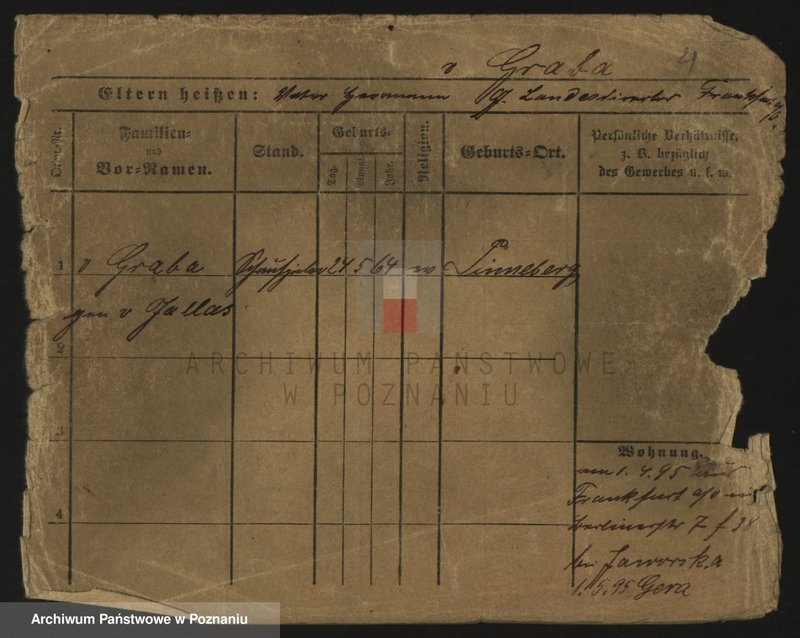 v Graba 4
Eltern heißen: Vater Hermann g. Landesdirector Frankfurt a/o.
Ord.-Nr.
Familien-
und
Vor-Namen.
Stand.
Geburts-
Tag.
Monat.
Jahr.
Religion.
Geburts-Ort.
Persönliche Verhältnisse,
z. B. bezüglich
des Gewerbes u. s. w.
1 v Graba Schauspieler 24 5 64 ev Pinneberg
gen v Jallas
2
3
4
Wohnung.
am 1. 4. 95 aus
Frankfurt a/o
Berlinerstr 7
bei Jaworska
1. 5. 95 Gera
ARCHIWUM PAŃSTWOWE
W POZNANIU
Archiwum Państwowe w Poznaniu